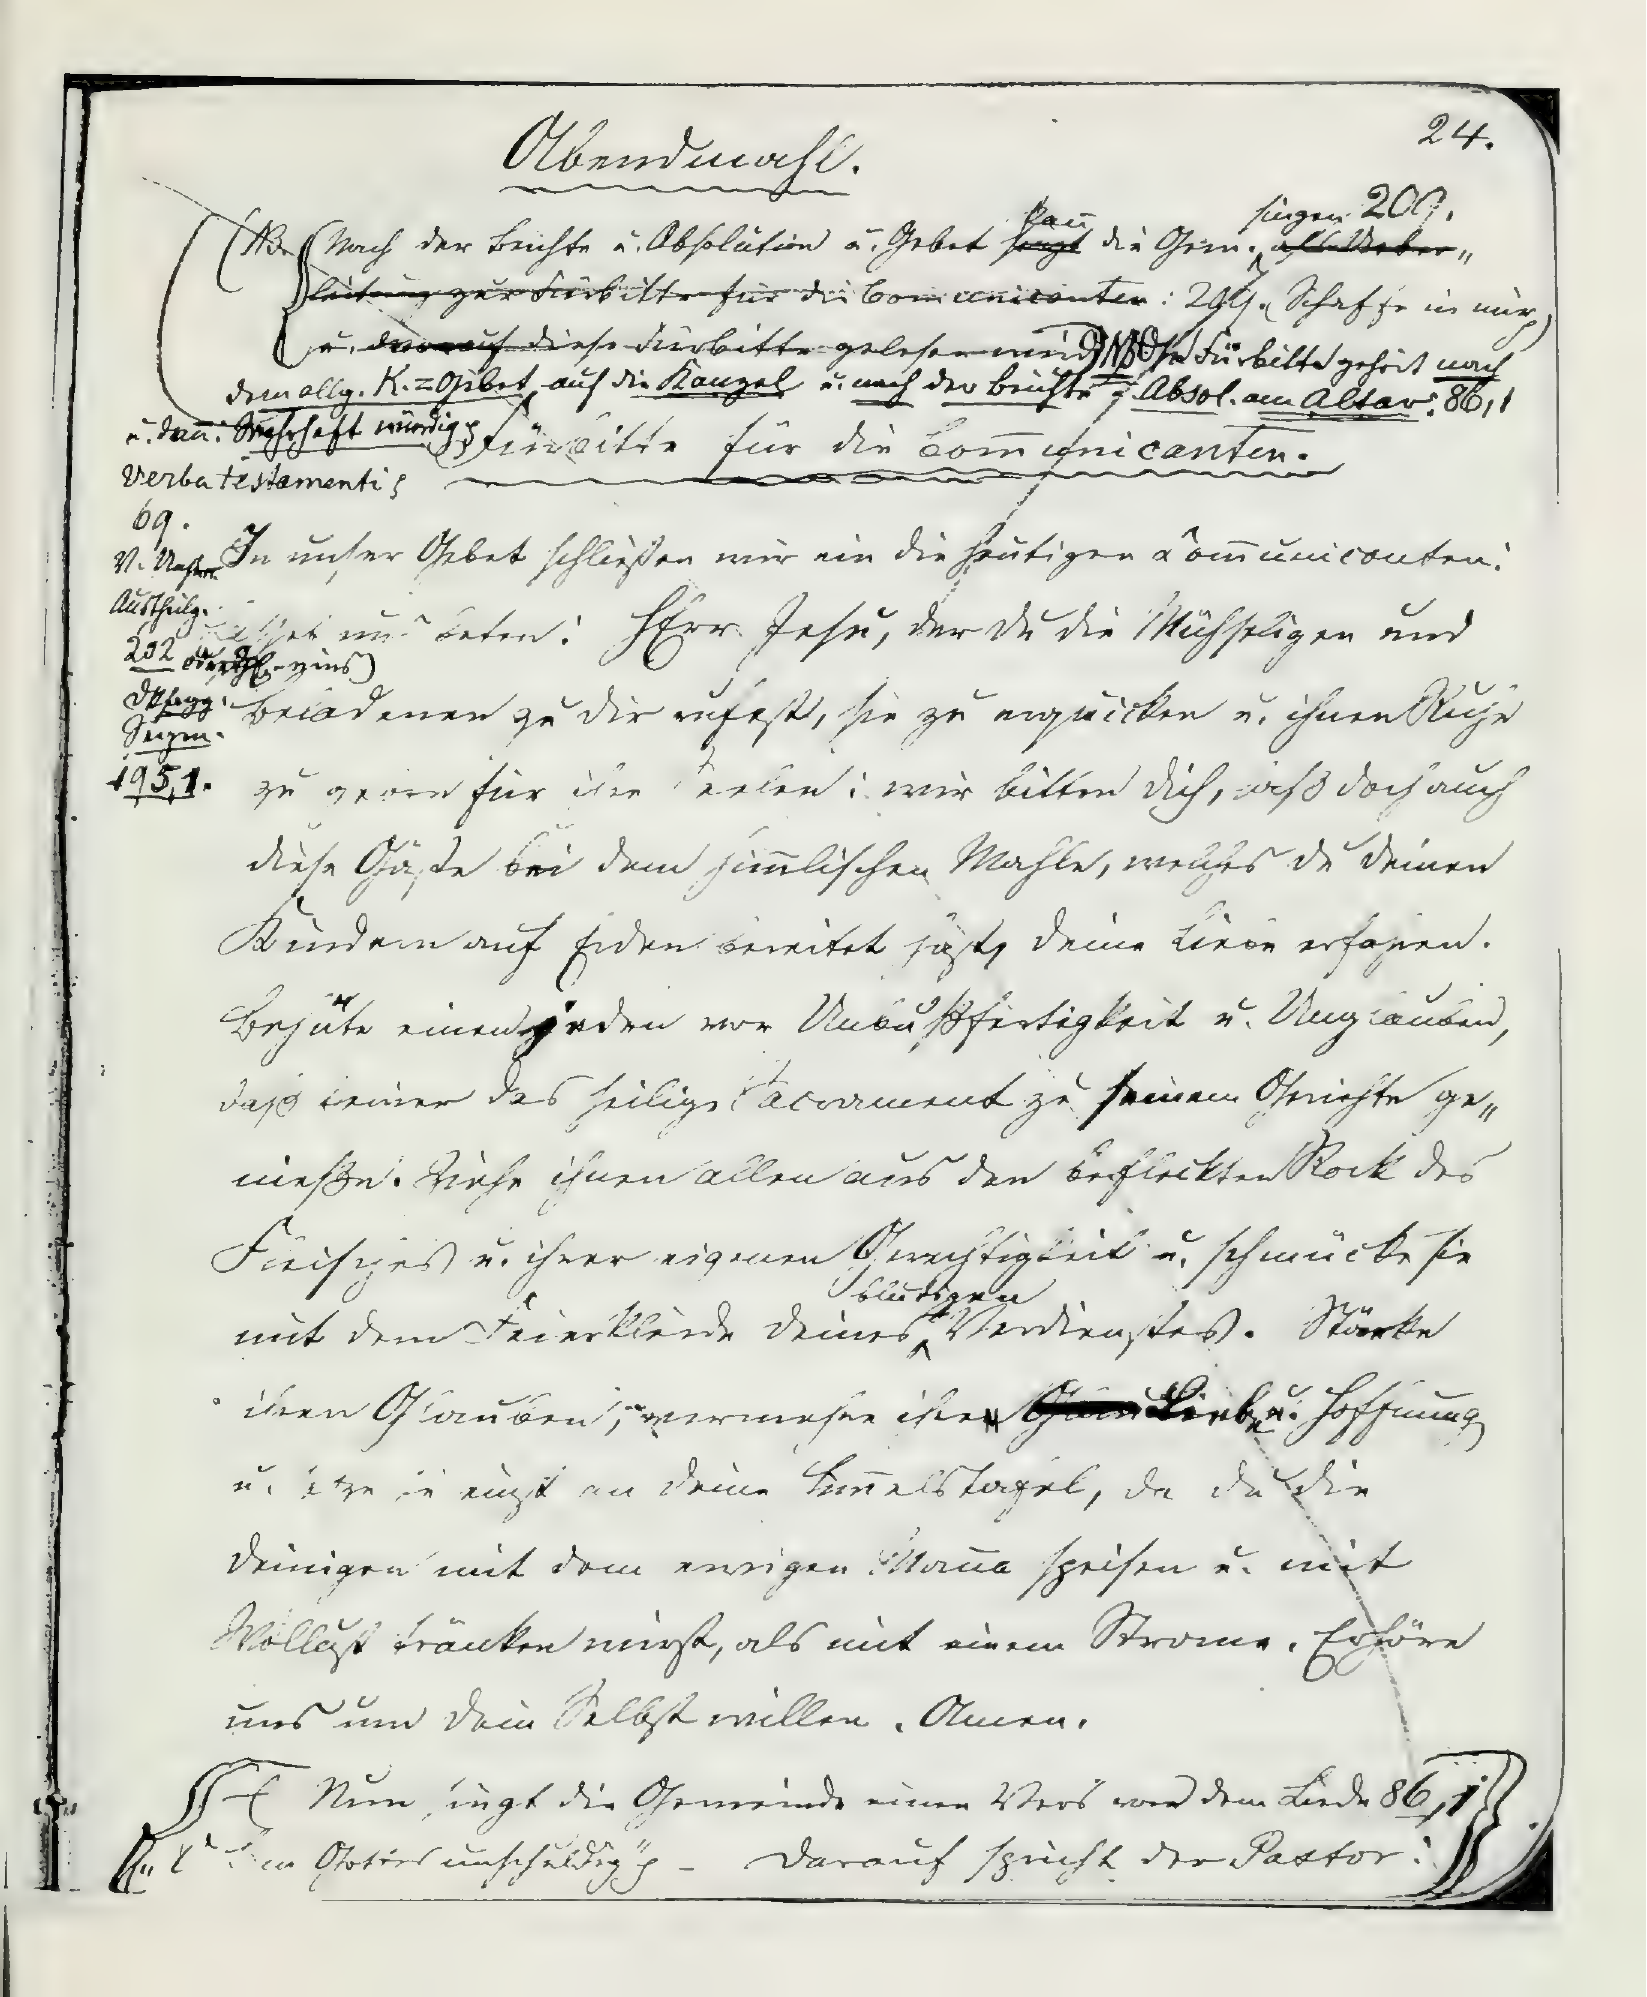 24.
Abendmahl.
kann singen 209.
(NB. (Nach der Beichte u. Absolution u. Gebet singt die Gem. als Ueber„
leitung zur Fürbitte für die Communicanten: 209. (Schaffe in mir p)
u. darauf diese Fürbitte gelesen wird) NB Die Fürbitte gehört nach
dem allg. K.=Gebet auf die Kanzel u. nach der Beichte u. Absol. am Altar: 86,1
u. dann: Wahrhaft würdig p
Fürbitte für die Communicanten.
Verba testamenti p
69.
V. Unser
Austheilg.
202
Segen.
195,1.
In unser Gebet schließen wir ein die heutigen Communicanten:
lasset uns beten: HErr Jesu, der du die Mühseligen und
Beladenen zu dir rufest, sie zu erquicken u. ihnen Ruhe
zu geben für ihre Seelen: wir bitten dich, laß doch auch
diese Gäste bei dem himmlischen Mahle, welches du deinen
Kindern auf Erden bereitet hast, deine Liebe erfahren.
Behüte einen jeden vor Unbußfertigkeit u. Unglauben,
daß keiner das heilige Sacrament zu seinem Gerichte ge„
nieße. Ziehe ihnen allen aus den befleckten Rock des
Fleisches u. ihrer eigenen Gerechtigkeit u. schmücke sie
mit dem Feierkleide deines blutigen Verdienstes. Stärke
ihren Glauben, vermehre ihre Liebe u. Hoffnung
u. setze sie einst an deine Himmelstafel, da du die
Deinigen mit dem ewigen Manna speisen u. mit
Wollust tränken wirst, als mit einem Strome. Erhöre
uns um dein Selbst willen. Amen.
Nun singt die Gemeinde einen Vers von dem Liede 86,1
„O Lamm Gottes unschuldig" p – Darauf spricht der Pastor: